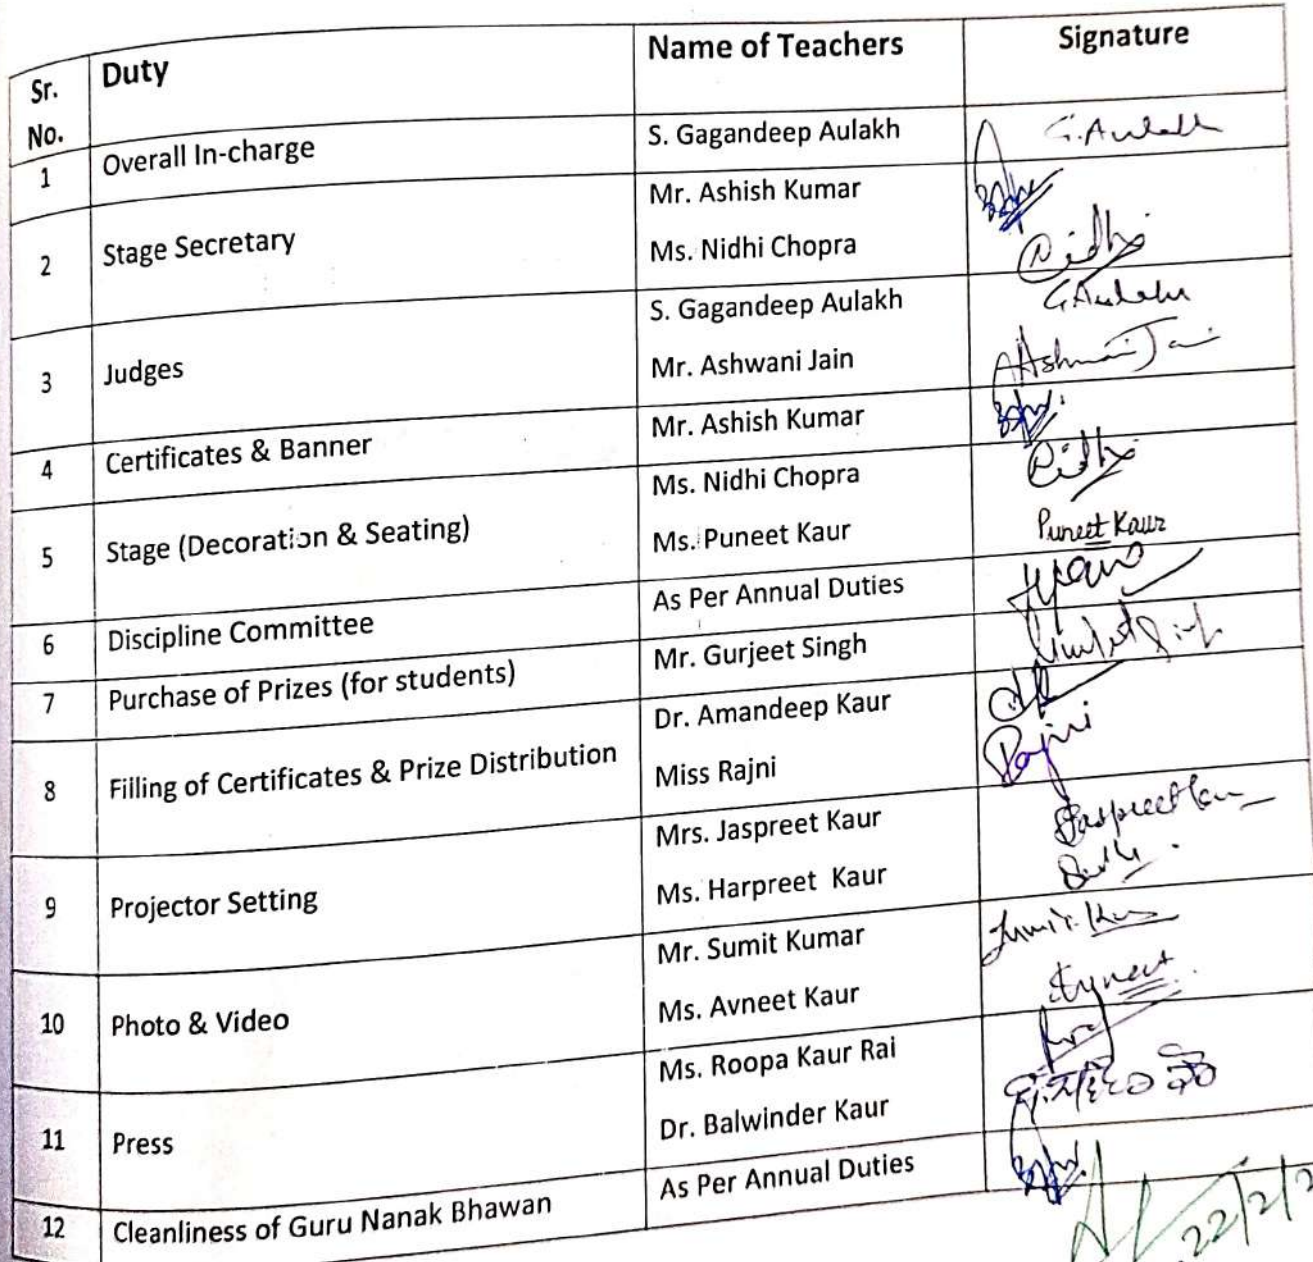 Sr. No. Duty Name of Teachers Signature
1 Overall In-charge S. Gagandeep Aulakh G.Aulakh
2 Stage Secretary Mr. Ashish Kumar
Ms. Nidhi Chopra Nidhi
3 Judges S. Gagandeep Aulakh G.Aulakh
Mr. Ashwani Jain Ashwani Jain
4 Certificates & Banner Mr. Ashish Kumar
5 Stage (Decoration & Seating) Ms. Nidhi Chopra Nidhi
Ms. Puneet Kaur Puneet Kaur
6 Discipline Committee As Per Annual Duties
7 Purchase of Prizes (for students) Mr. Gurjeet Singh
8 Filling of Certificates & Prize Distribution Dr. Amandeep Kaur
Miss Rajni Rajni
9 Projector Setting Mrs. Jaspreet Kaur Jaspreet Kaur
Ms. Harpreet Kaur
10 Photo & Video Mr. Sumit Kumar
Ms. Avneet Kaur Avneet
11 Press Ms. Roopa Kaur Rai
Dr. Balwinder Kaur
12 Cleanliness of Guru Nanak Bhawan As Per Annual Duties
22/2/2